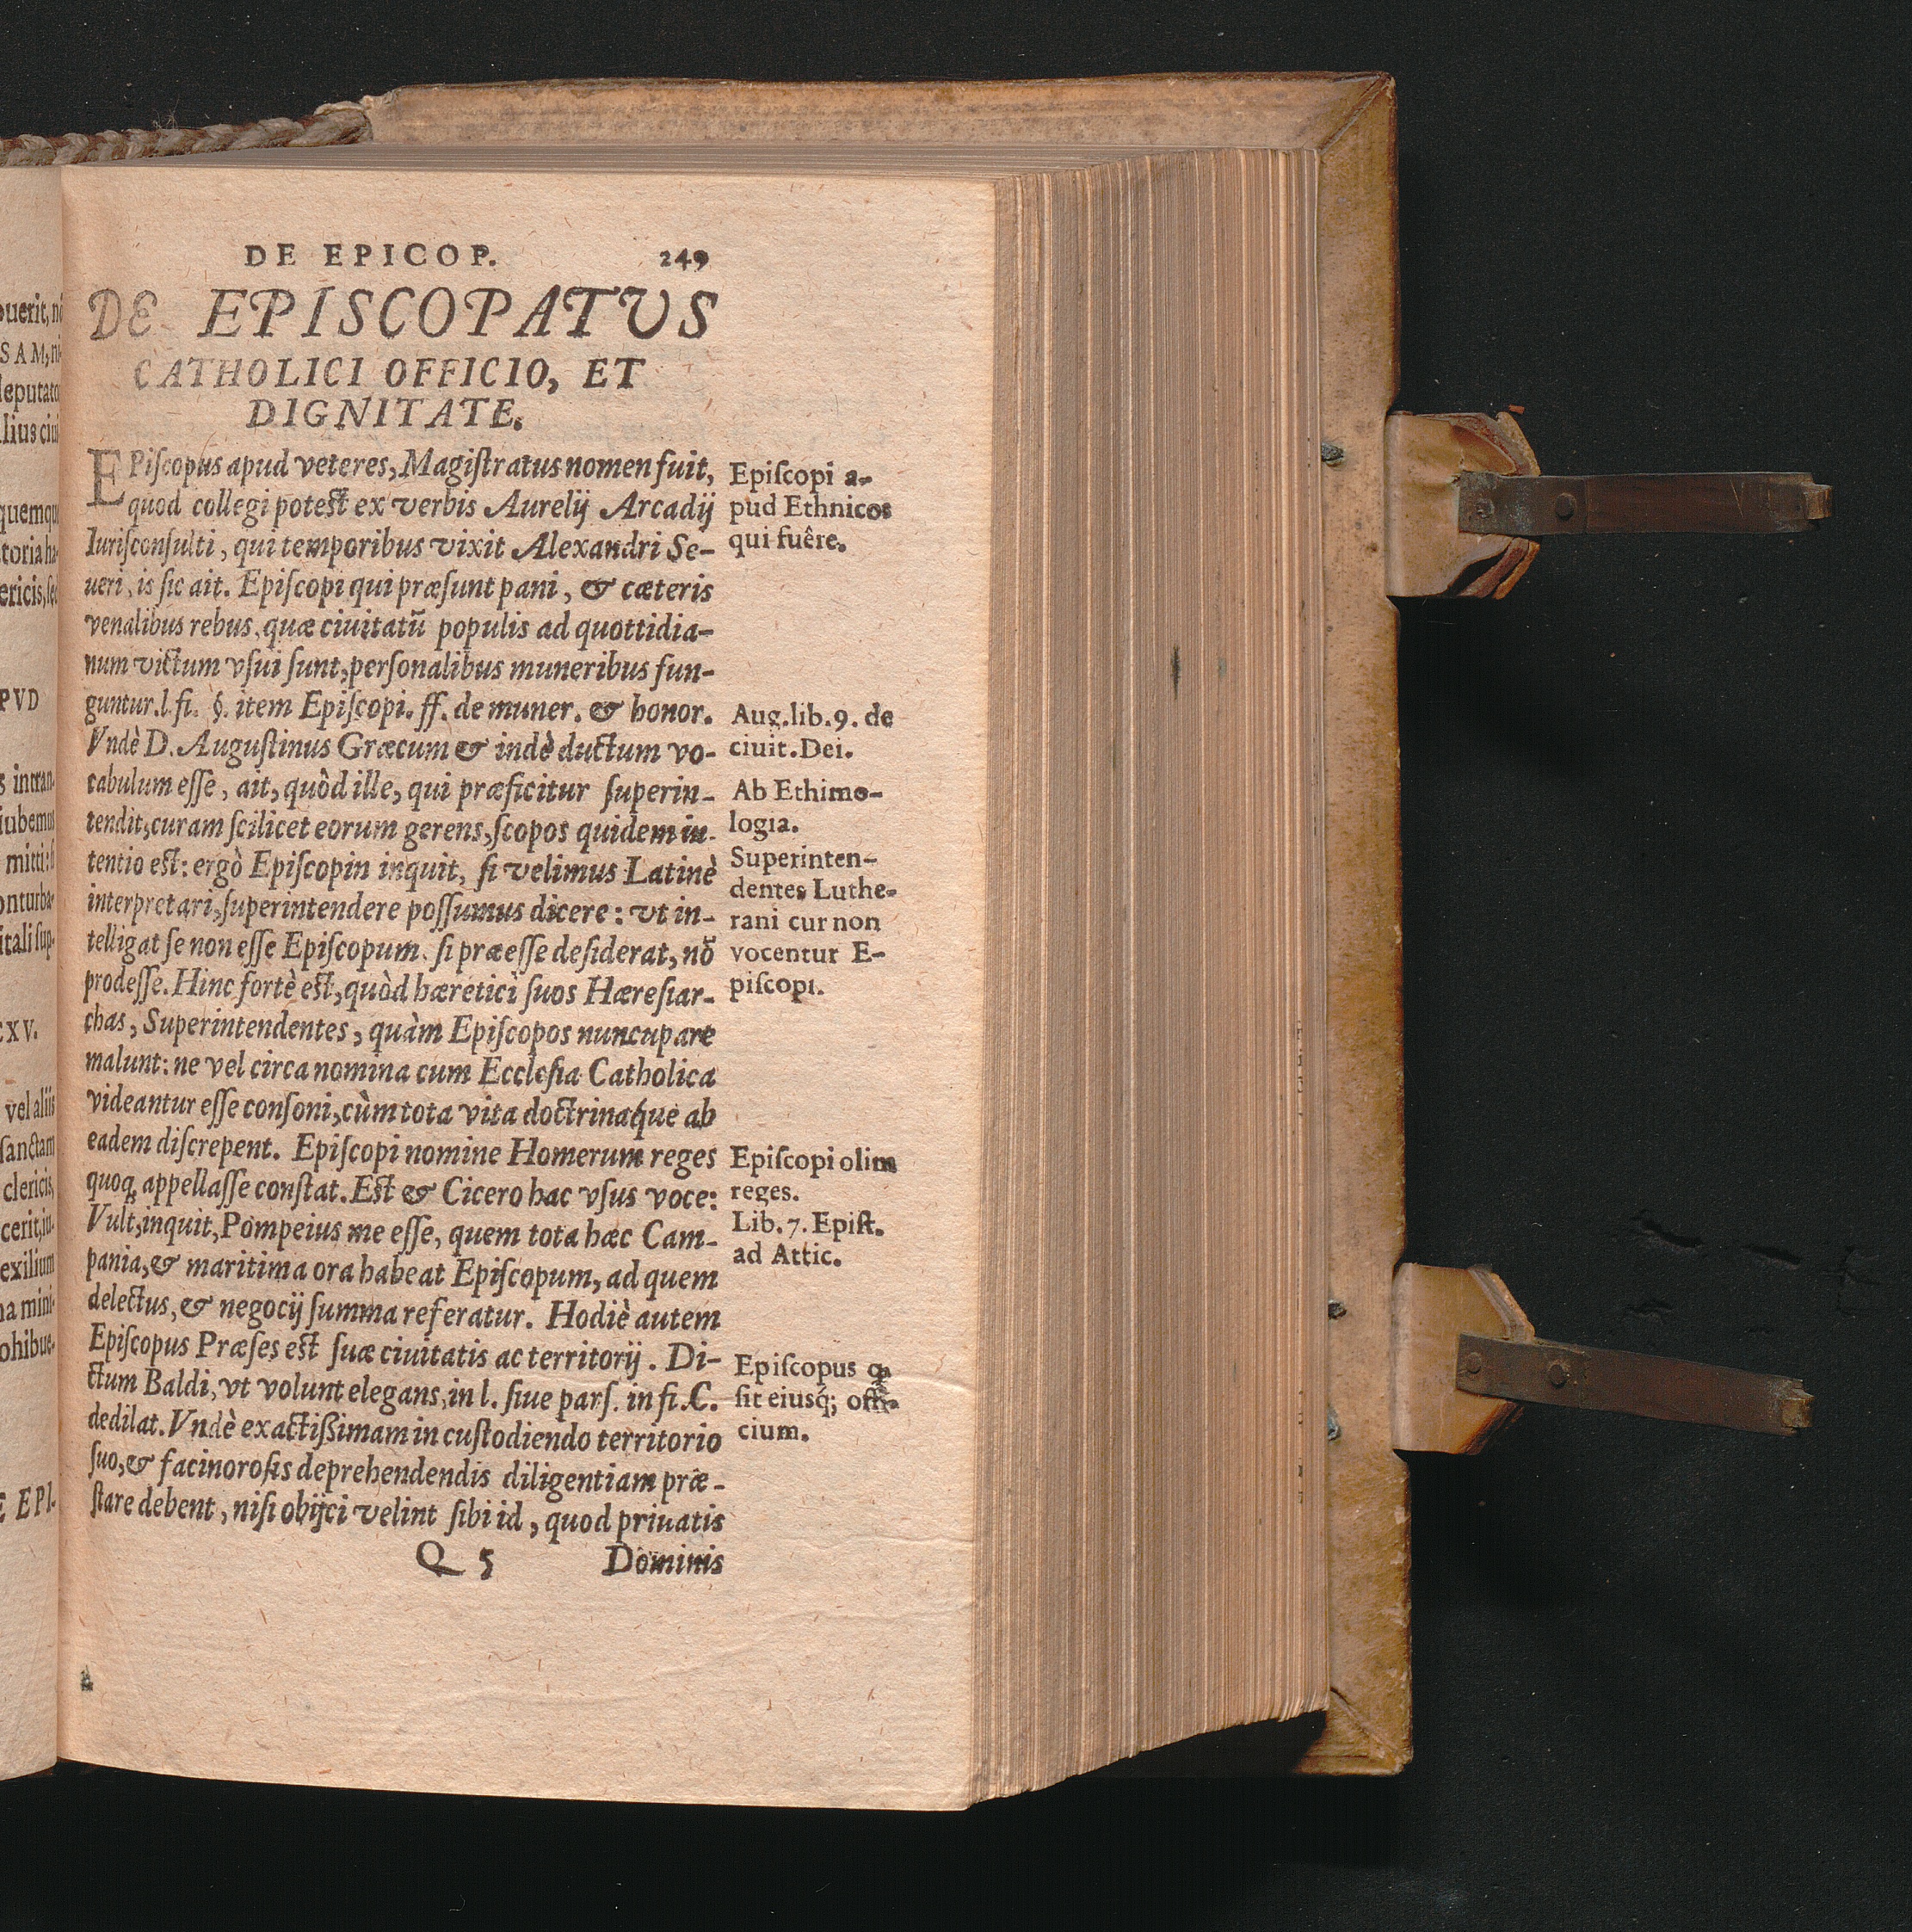 DE EPICOP. 249
DE EPISCOPATVS
CATHOLICI OFFICIO, ET
DIGNITATE.
EPiſcopus apud veteres, Magiſtratus nomen fuit,
quod collegi poteſt ex verbis Aurelij Arcadij
Iuriſconſulti, qui temporibus vixit Alexandri Se-
ueri, is ſic ait. Epiſcopi qui præſunt pani, & cæteris
venalibus rebus, quæ ciuitatū populis ad quottidia-
num victum vſui ſunt, perſonalibus muneribus fun-
guntur. l. fi. §. item Epiſcopi. ff. de muner. & honor.
Vndè D. Auguſtinus Græcum & indè ductum vo-
cabulum eſſe, ait, quòd ille, qui præficitur ſuperin-
tendit, curam ſcilicet eorum gerens, ſcopos quidem in-
tentio eſt: ergò Epiſcopin inquit, ſi velimus Latinè
interpretari, ſuperintendere poſſumus dicere: vt in-
telligat ſe non eſſe Epiſcopum. ſi præeſſe deſiderat, nō
prodeſſe. Hinc fortè eſt, quòd hæretici ſuos Hæreſiar-
chas, Superintendentes, quàm Epiſcopos nuncupare
malunt: ne vel circa nomina cum Eccleſia Catholica
videantur eſſe conſoni, cùm tota vita doctrinaq́ue ab
eadem diſcrepent. Epiſcopi nomine Homerum reges
quoq, appellaſſe conſtat. Eſt & Cicero hac vſus voce:
Vult, inquit, Pompeius me eſſe, quem tota hæc Cam-
pania, & maritima ora habeat Epiſcopum, ad quem
delectus, & negocij ſumma referatur. Hodiè autem
Epiſcopus Præſes eſt ſuæ ciuitatis ac territorij. Di-
ctum Baldi, vt volunt elegans, in l. ſiue parſ. in fi. C.
dedilat. Vndè exactiſsimam in cuſtodiendo territorio
ſuo, & facinoroſis deprehendendis diligentiam præ-
ſtare debent, niſi obijci velint ſibi id, quod priuatis
Q 5 Dominis
Epiſcopi a-
pud Ethnicos
qui fuêre.
Aug. lib. 9. de
ciuit. Dei.
Ab Ethimo-
logia.
Superinten-
dentes Luthe-
rani cur non
vocentur E-
piſcopi.
Epiſcopi olim
reges.
Lib. 7. Epiſt.
ad Attic.
Epiſcopus
ſit eiusq́; offi-
cium.
ouerit, nō
SAM, ni-
deputato
lius ciui
quemqu
toria ha-
ericis, ſed
PVD
s intran-
iubemus
mitti: ſi
onturba-
itali ſup-
CXV.
vel aliis
ſanctam
clericis,
cerit, iu-
exilium
na mini-
ohibue-
E EPI-